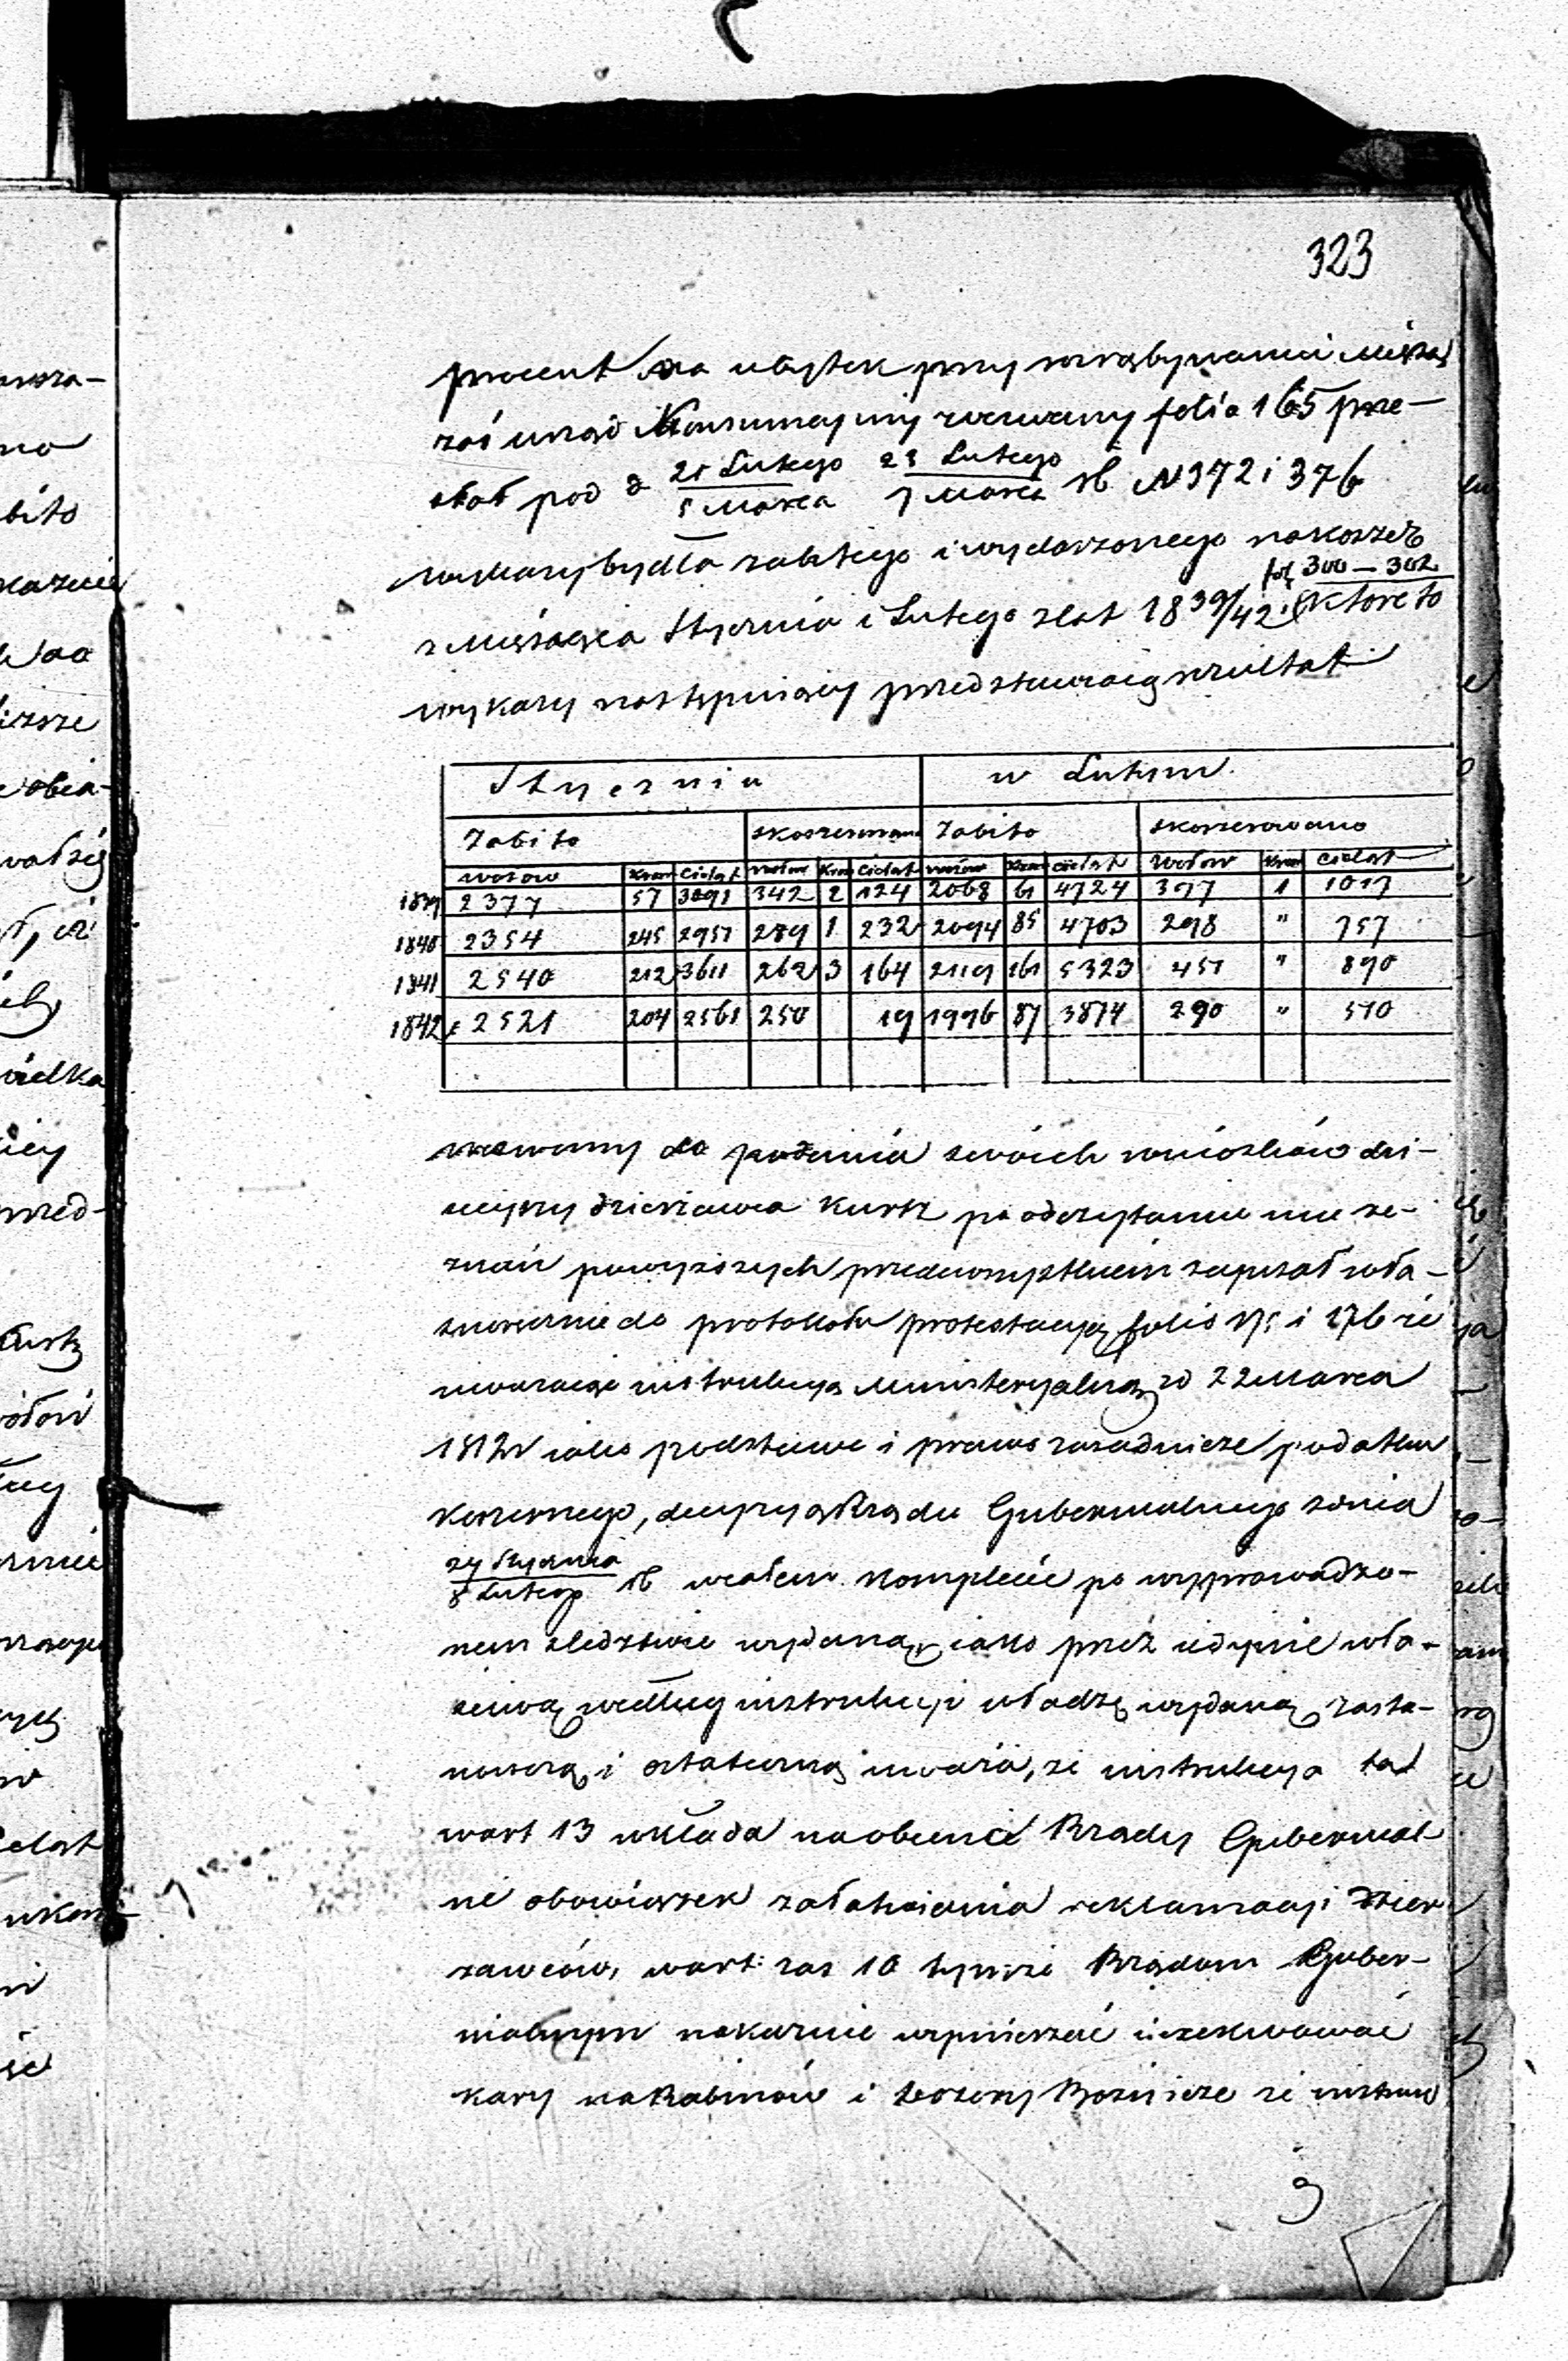 323
procent na ubytek przy wyrąbywaniu mięsa,
zaś urząd Konsumcyjny wezwany folio 165 prze-
słał pod d 21 Lutego / 5 Marca 23 Lutego / 7 Marca rb N 372 i 376
wykazy bydła zabitego i wydarzonego na koszer
z Miesiąca Stycznia i Lutego z lat 1839/42 fol 300 – 302 które to
wykazy następujący przedstawiają rezultat
Styczniu w Lutym
Zabito skoszerowano Zabito skoszerowano
wołow Krow Cieląt wołow Krow Cieląt wołow Krow cieląt Wołow Krow cieląt
1839 2377 57 3091 342 2 124 2068 61 4724 377 1 1017
1840 2354 245 2957 289 1 232 2094 85 4703 298 " 757
1841 2540 212 3611 262 3 164 2119 161 5323 451 " 890
1842 r 2521 204 2561 250 19 1996 87 3874 290 " 510
wezwany do podania swoich wniosków dzi-
sieyszy dzierzawca Kurtz po odczytaniu mu ze-
znań powyższych przedewszystkiem zapisał wła-
snoręcznie do protokołu protestacyą folio 175 i 176 że
uważając instrukcyą Ministeryalną z d 22 Marca
1812 r iako podstawe i prawo zasadnicze podatku
koszernego, decyzyą Rządu Gubernialnego z dnia
27 Stycznia / 8 Lutego rb w całem komplecie po wyprowadzo-
nem śledztwie wydaną, iako przez iedynie wła-
ściwą według instrukcyi władzę wydaną za sta-
nowczą i ostateczną uważa, że instrukcya ta
w art 13 wkłada na obecne Rządy Gubernial-
ne obowiązek załatwienia reklamacyi Dzier
zawców, w art: zas 10 tymże Rządom Guber-
nialnym nakazuie wymierzać i exekwować
kary na Rabinów i Dozory Bożnicze że instruk